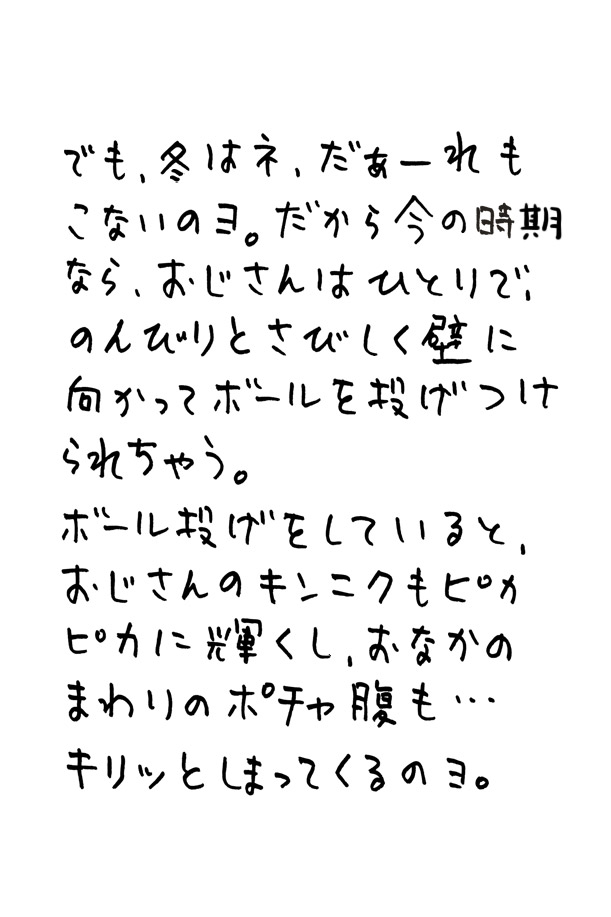 でも、冬はネ、だぁーれも
こないのヨ。だから今の時期
なら、おじさんはひとりで、
のんびりとさびしく壁に
向かってボールを投げつけ
られちゃう。
ボール投げをしていると、
おじさんのキンニクもピカ
ピカに輝くし、おなかの
まわりのポチャ腹も…
キリッとしまってくるのヨ。